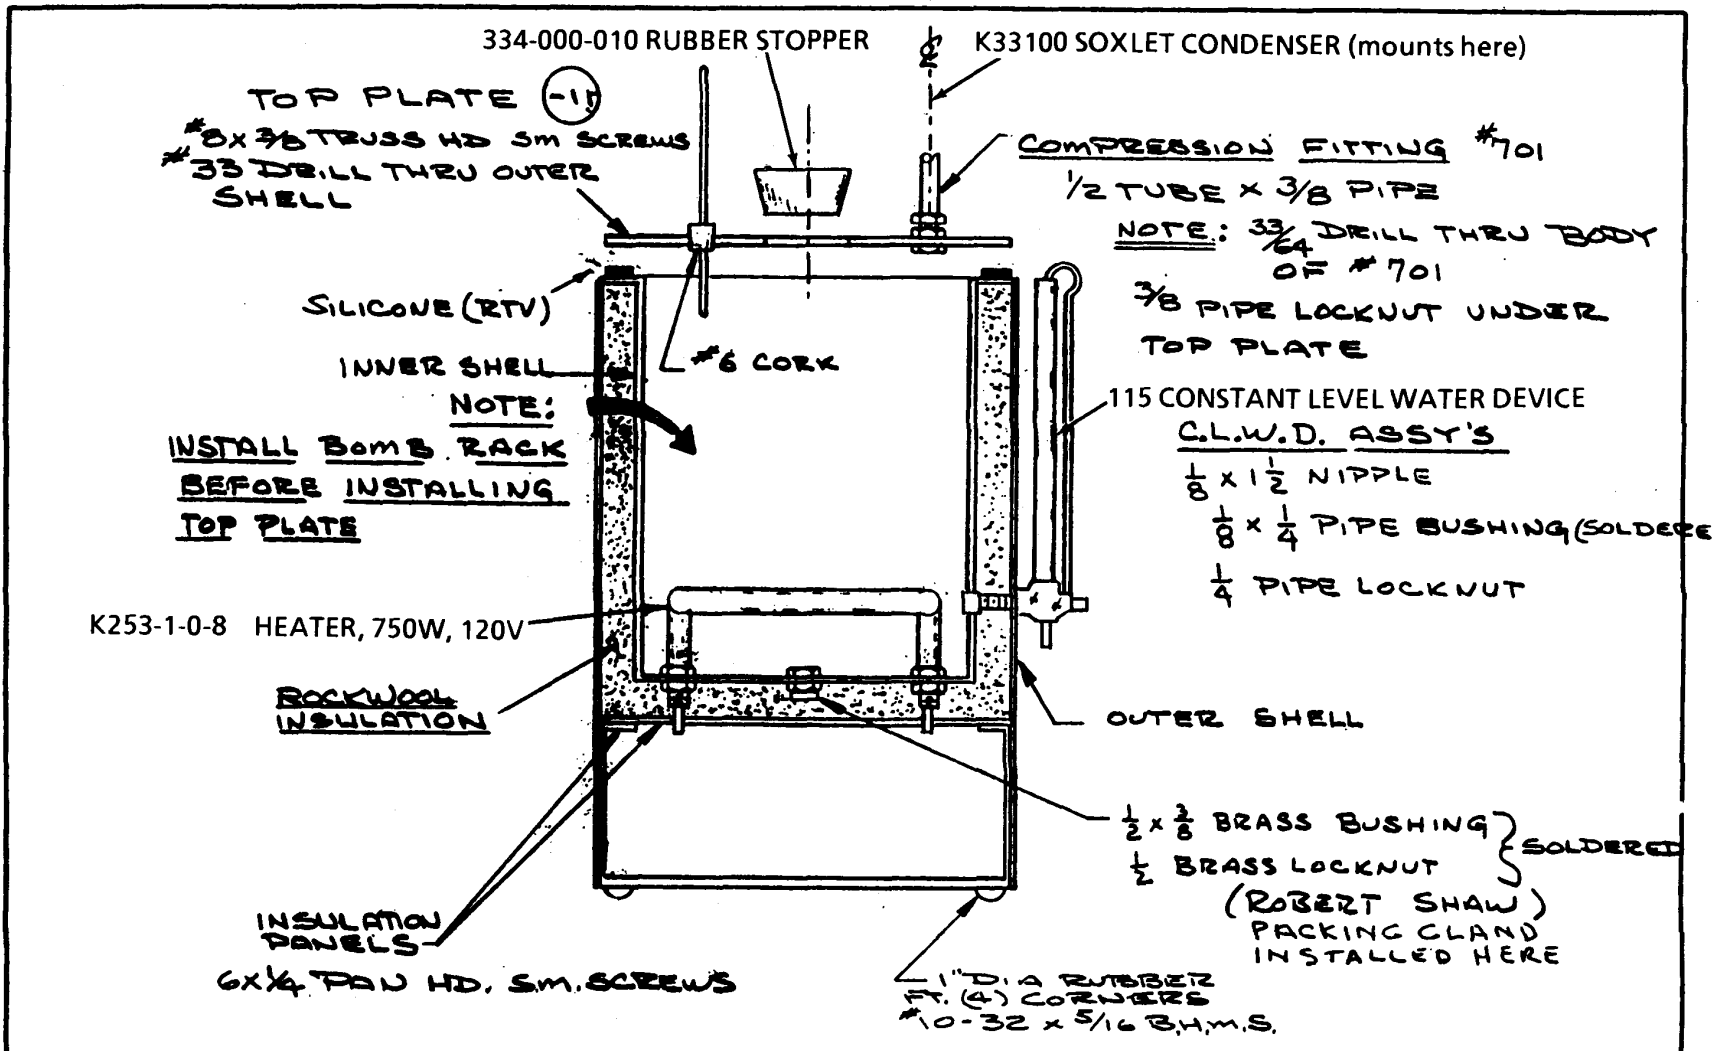 334-000-010 RUBBER STOPPER
K33100 SOXLET CONDENSER (mounts here)
TOP PLATE
#8 X 3/8 TRUSS HD SM SCREWS
#33 DRILL THRU OUTER
SHELL
COMPRESSION FITTING #701
1/2 TUBE X 3/8 PIPE
NOTE: 33/64 DRILL THRU BODY
OF #701
3/8 PIPE LOCKNUT UNDER
TOP PLATE
SILICONE (RTV)
INNER SHELL
#6 CORK
NOTE:
INSTALL BOMB RACK
BEFORE INSTALLING
TOP PLATE
115 CONSTANT LEVEL WATER DEVICE
C.L.W.D. ASSY'S
1/8 X 1 1/2 NIPPLE
1/8 X 1/4 PIPE BUSHING (SOLDERE
1/4 PIPE LOCKNUT
K253-1-0-8 HEATER, 750W, 120V
ROCKWOOL
INSULATION
OUTER SHELL
1/2 X 3/8 BRASS BUSHING
1/2 BRASS LOCKNUT
SOLDERED
(ROBERT SHAW)
PACKING GLAND
INSTALLED HERE
INSULATION
PANELS
6X1/4 PAN HD. S.M. SCREWS
1" DIA RUBBER
FT. (4) CORNERS
#10-32 X 5/16 B.H.M.S.